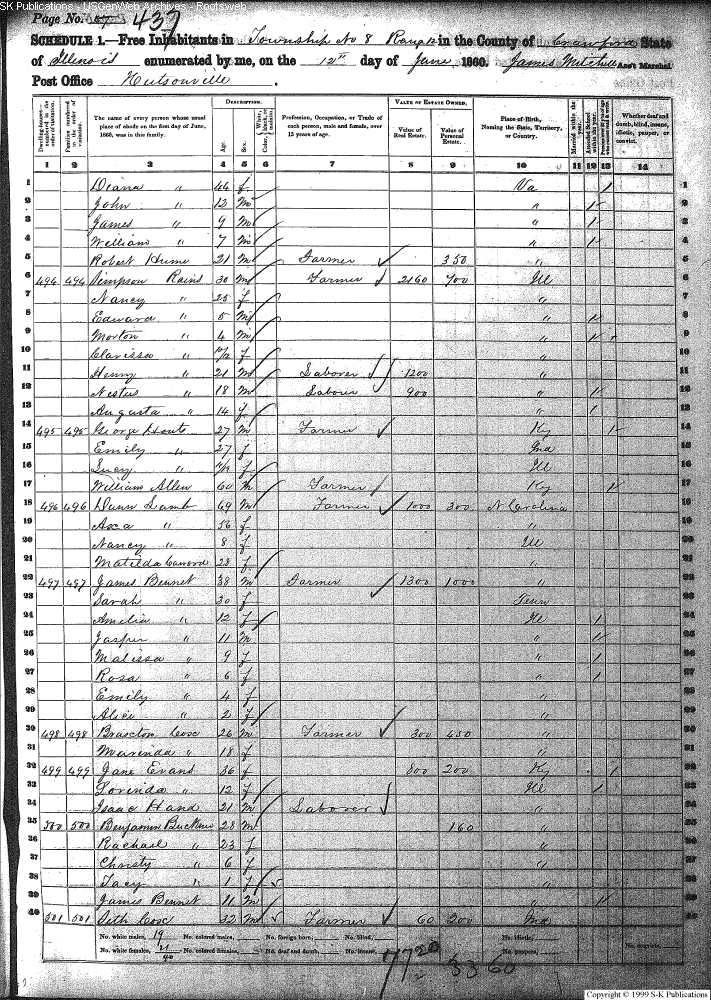 SK Publications - USGenWeb Archives - Rootsweb
Page No. 437
SCHEDULE 1.—Free Inhabitants in Township No 8 Range in the County of Crawford State
of Illinois enumerated by me, on the 12th day of June 1860. James Mitchell Ass't Marshal
Post Office Hutsonville.
Dwelling-houses— numbered in the order of visitation.
Families numbered in the order of visitation.
The name of every person whose usual place of abode on the first day of June, 1860, was in this family.
DESCRIPTION.
Age.
Sex.
Color, White, black, or mulatto.
Profession, Occupation, or Trade of each person, male and female, over 15 years of age.
VALUE OF ESTATE OWNED.
Value of Real Estate.
Value of Personal Estate.
Place of Birth, Naming the State, Territory, or Country.
Married within the year.
Attended School within the year.
Whether deaf and dumb, blind, insane, idiotic, pauper, or convict.
1 2 3 4 5 6 7 8 9 10 11 12 13 14
1 Diana " 44 f Va / 1
2 John " 12 m " / 2
3 James " 9 m " / 3
4 William " 7 m " / 4
5 Robert Hume 21 m Farmer 350 5
6 494 494 Simpson Rains 30 m Farmer 2160 700 Ill 6
7 Nancy " 25 f " 7
8 Edward " 5 m " / 8
9 Morton " 4 m " / 9
10 Clarissa " f " 10
11 Henry " 21 m Laborer 1200 " 11
12 Nestus " 18 m Laborer 900 " / 12
13 Augusta " 14 f " / 13
14 495 495 George Houts 27 m Farmer Ky / 14
15 Emily " 27 f Ind 15
16 Lucy " f Ill 16
17 William Allen 60 m Farmer Ky / 17
18 496 496 Dann Lamb 69 m Farmer 1000 300 N Carolina 18
19 Asca " 56 f " 19
20 Nancy " 8 f Ill 20
21 Matilda 28 f " 21
22 497 497 James Bennet 38 m Farmer 1300 1000 " 22
23 Sarah " 30 f Tenn 23
24 Amelia " 12 f Ill / 24
25 Jasper " 11 m " / 25
26 Malissa " 9 f " / 26
27 Rosa " 6 f " / 27
28 Emily " 4 f " 28
29 Alice " 2 f " 29
30 498 498 Braxton Cox 26 m Farmer 300 450 " 30
31 Marinda " 18 f " 31
32 499 499 Jane Evans 36 f 800 200 Ky / 32
33 Lorinda " 12 f Ill / 33
34 Isaac Hand 21 m Laborer " 34
35 500 500 Benjamin 28 m 160 " 35
36 Rachael " 23 f " 36
37 Christy " 6 f " 37
38 Tacy " 1 f " 38
39 James Bennet 11 m " / 39
40 501 501 Seth Cox 32 m Farmer 60 200 Ind 40
No. white males, 19 No. colored males, No. foreign born, No. blind, No. idiotic,
No. white females, 21 No. colored females, No. deaf and dumb, No. insane, No. paupers, No. convicts,
40
7720 3360
Copyright © 1999 S-K Publications